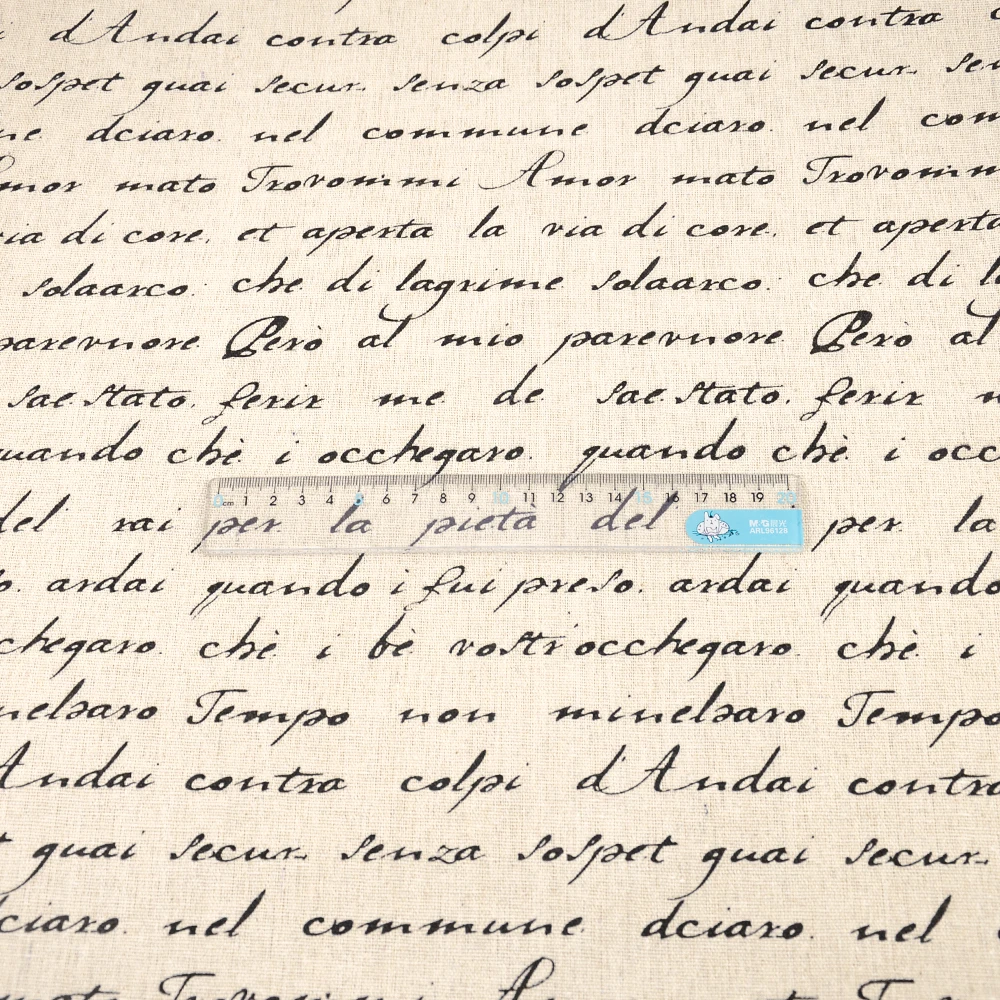 d'Andai contra colpi d'Andai contra
sospet guai secur. senza sospet guai secur.
dciaro. nel commune dciaro. nel
mato Trovommi Amor mato
via di core. et aperta la via di core. et
solaarco. che di lagrime solaarco. che di
parevnore. Però al mio parevnore. Però al
sae.stato. ferir me de sae.stato. ferir
quando chè i occhegaro. quando chè. i
del rai per la pietà del per. la
cm 1 2 3 4 5 6 7 8 9 10 11 12 13 14 15 16 17 18 19 20
M&G晨光
ARL96128
ardai quando i fui preso. ardai quando
chegaro. chè i bè vostri occhegaro. chè i
Tempo non minelsaro Tempo
Andai contra colpi d'Andai contra
guai secur. senza sospet guai secur.
dciaro. nel commune. dciaro. nel